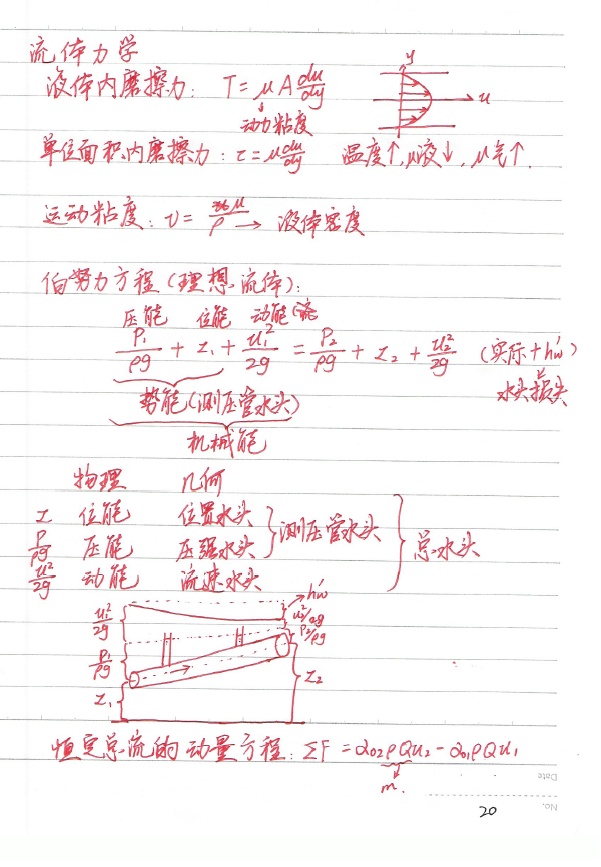 流体力学
液体内磨擦力: T = μA du/dy
动力粘度
y
u
单位面积内磨擦力: τ = μ du/dy 温度↑, μ液↓, μ气↑.
运动粘度: υ = μ/ρ → 液体密度
伯努力方程(理想流体):
压能 位能 动能
P₁/ρg + z₁ + u₁²/2g = P₂/ρg + z₂ + u₂²/2g (实际+hw')
水头损失
势能(测压管水头)
机械能
物理 几何
z 位能 位置水头 } 测压管水头 } 总水头
P/ρg 压能 压强水头
u²/2g 动能 流速水头
hw'
u₁²/2g u₂²/2g
P₁/ρg P₂/ρg
z₁ z₂
恒定总流的动量方程: ΣF = α₀₂ρQu₂ - α₀₁ρQu₁
m.
Date
No.
20